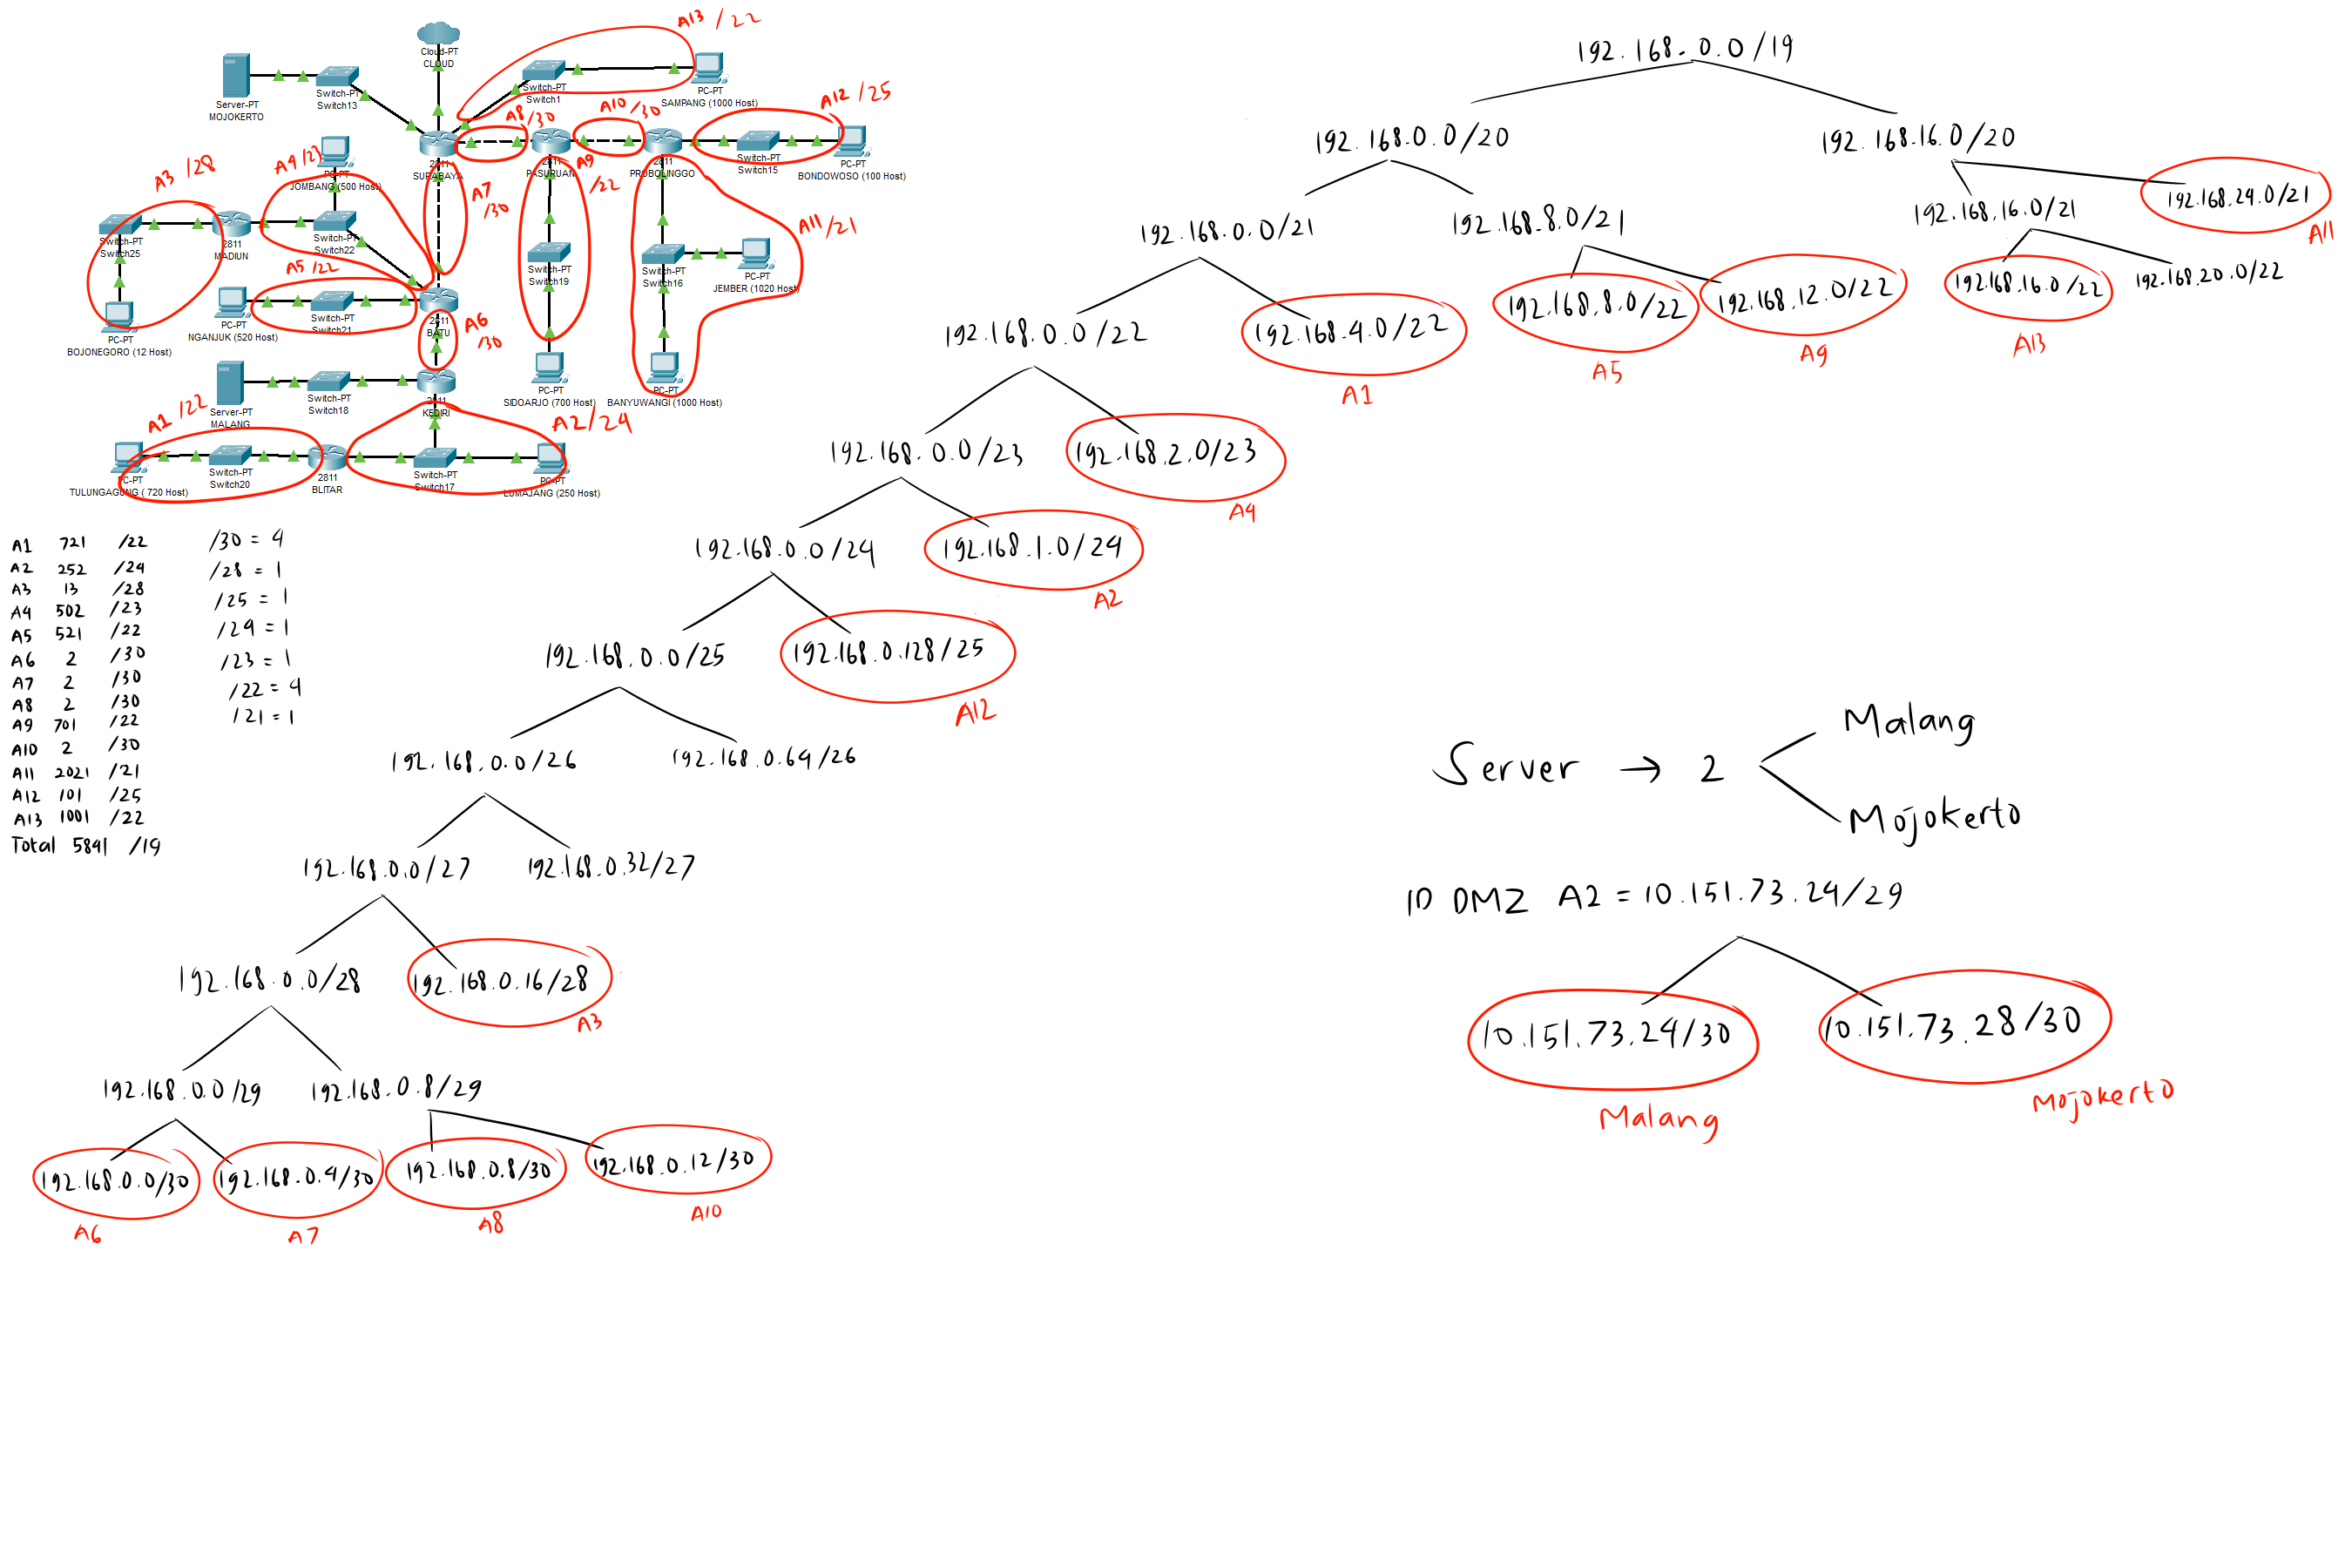 A13 /22
Cloud-PT
CLOUD
Server-PT
MOJOKERTO
Switch-PT
Switch13
Switch-PT
Switch1
PC-PT
SAMPANG (1000 Host)
A8/30
A10 /30
A12 /25
2811
SURABAYA
2811
PASURUAN
2811
PROBOLINGGO
Switch-PT
Switch15
PC-PT
BONDOWOSO (100 Host)
A3 /28
A4 /23
PC-PT
JOMBANG (500 Host)
A7
/30
A9
/22
A11 /21
Switch-PT
Switch25
2811
MADIUN
Switch-PT
Switch22
A5 /22
Switch-PT
Switch19
Switch-PT
Switch16
PC-PT
JEMBER (1020 Host)
PC-PT
BOJONEGORO (12 Host)
PC-PT
NGANJUK (520 Host)
Switch-PT
Switch21
2811
BATU
A6
/30
Server-PT
MALANG
Switch-PT
Switch18
2811
KEDIRI
PC-PT
SIDOARJO (700 Host)
PC-PT
BANYUWANGI (1000 Host)
A1 /22
A2/24
PC-PT
TULUNGAGUNG ( 720 Host)
Switch-PT
Switch20
2811
BLITAR
Switch-PT
Switch17
PC-PT
LUMAJANG (250 Host)
A1 721 /22
A2 252 /24
A3 13 /28
A4 502 /23
A5 521 /22
A6 2 /30
A7 2 /30
A8 2 /30
A9 701 /22
A10 2 /30
A11 2021 /21
A12 101 /25
A13 1001 /22
Total 5841 /19
/30 = 4
/28 = 1
/25 = 1
/24 = 1
/23 = 1
/22 = 4
/21 = 1
192.168.0.0/19
192.168.0.0/20
192.168.16.0/20
192.168.0.0/21
192.168.8.0/21
192.168.16.0/21
192.168.24.0/21
A11
192.168.0.0/22
192.168.4.0/22
A1
192.168.8.0/22
A5
192.168.12.0/22
A9
192.168.16.0/22
A13
192.168.20.0/22
192.168.0.0/23
192.168.2.0/23
A4
192.168.0.0/24
192.168.1.0/24
A2
192.168.0.0/25
192.168.0.128/25
A12
192.168.0.0/26
192.168.0.64/26
192.168.0.0/27
192.168.0.32/27
192.168.0.0/28
192.168.0.16/28
A3
192.168.0.0/29
192.168.0.8/29
192.168.0.0/30
192.168.0.4/30
192.168.0.8/30
192.168.0.12/30
A6
A7
A8
A10
Server → 2
Malang
Mojokerto
ID DMZ A2 = 10.151.73.24/29
10.151.73.24/30
10.151.73.28/30
Malang
Mojokerto